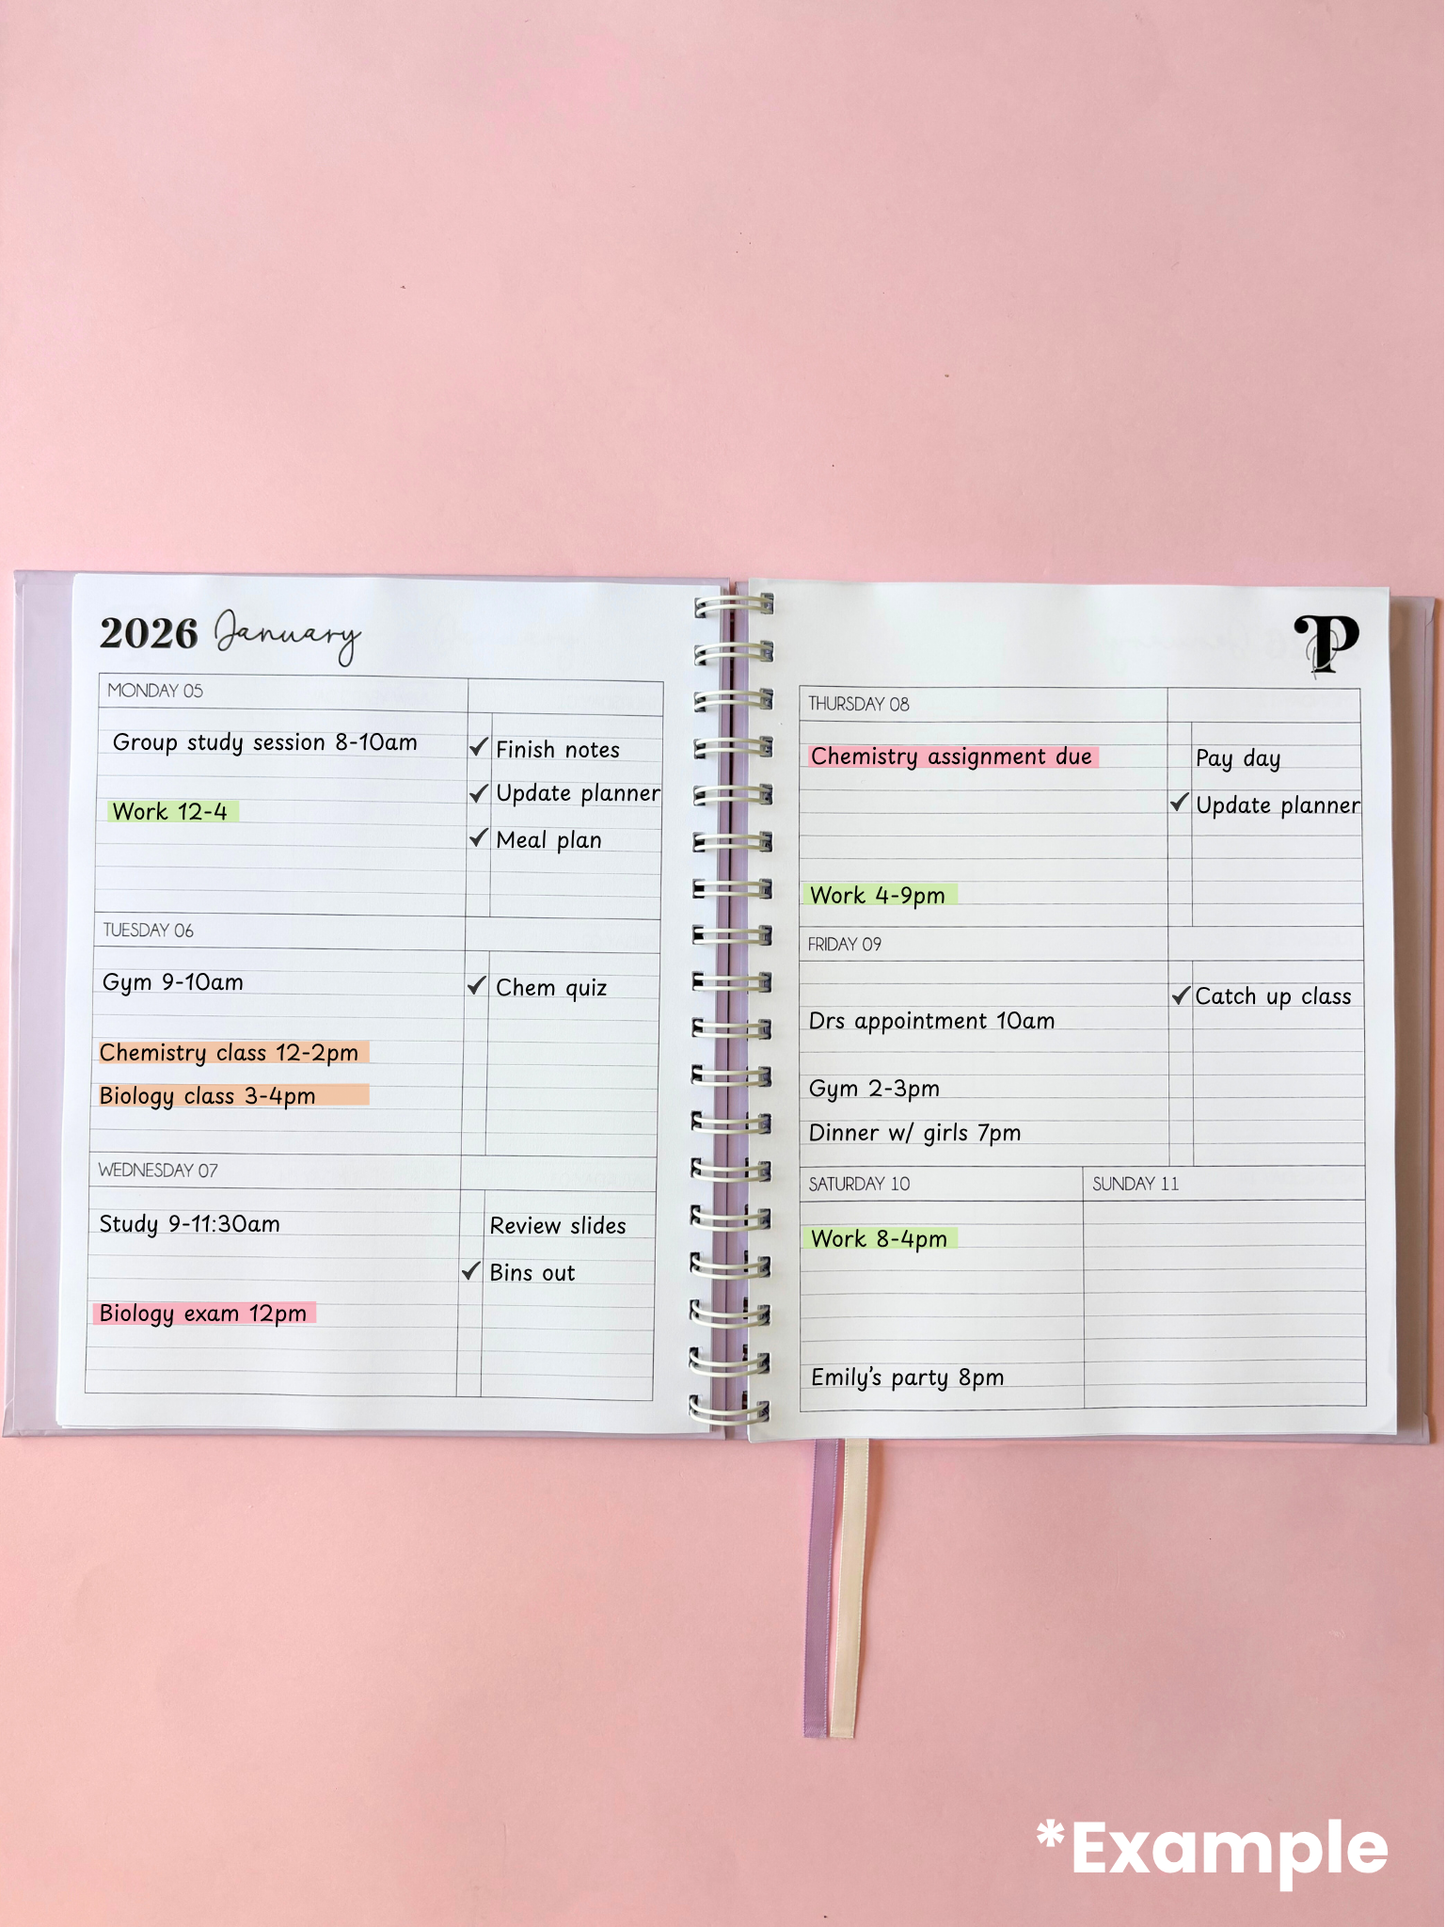 2026 January
P
MONDAY 05
Group study session 8-10am
✓ Finish notes
✓ Update planner
Work 12-4
✓ Meal plan
TUESDAY 06
Gym 9-10am
✓ Chem quiz
Chemistry class 12-2pm
Biology class 3-4pm
WEDNESDAY 07
Study 9-11:30am
Review slides
✓ Bins out
Biology exam 12pm
THURSDAY 08
Chemistry assignment due
Pay day
✓ Update planner
Work 4-9pm
FRIDAY 09
✓ Catch up class
Drs appointment 10am
Gym 2-3pm
Dinner w/ girls 7pm
SATURDAY 10
Work 8-4pm
Emily's party 8pm
SUNDAY 11
*Example